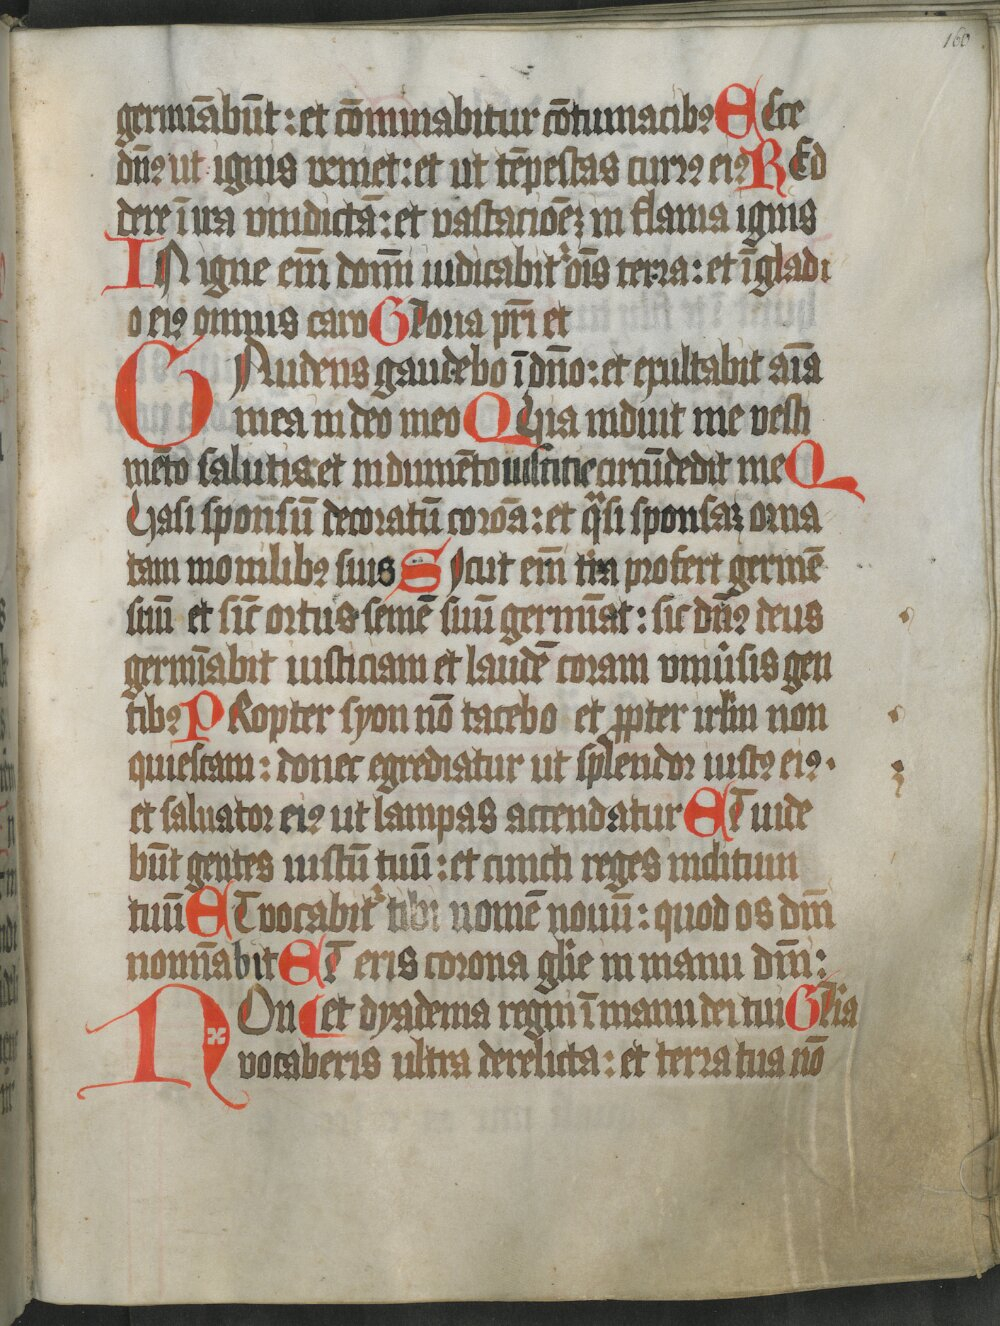 160
germiābūt : et cōminabitur cōtumacibꝰ Ecce
dn̄ꝰ ut ignis veniet : et ut tēpestas currꝰ eiꝰ Red
dere ī ira vindictā : et vastacioēꝫ in flama ignis
In igne em̄ domī iudicabit᷑ oīs terra : et ī gladi
o eiꝰ omnis caro Gloria pr̄i et
Gaudens gaudebo ī dn̄o : et exultabit aīa
mea in deo meo Quia induit me vesti
mēto salutis et indumēto iusticie circūdedit me Q
uasi sponsū decoratū coroā : et q̄si sponsaꝫ orna
tam monilibꝰ suis Sicut em̄ tr̄a profert germē
suū et sic̄ ortus semē suū germīat : sic dn̄ꝰ deus
germīabit iusticiam et laudē coram vniūsis gen
tibꝰ Propter syon nō tacebo et ꝓpter irlm̄ non
quiescam : donec egrediatur ut splendor iustꝰ eiꝰ .
et saluator eiꝰ ut lampas accendatur Et uide
būt gentes iustū tuū : et cuncti reges inclitum
tuū Et vocabit᷑ tibi nomē nouū : quod os dm̄i
nomīabit Et eris corona gl̄ie in manu dm̄i :
Et dyadema regni ī manu dei tui Gl̄ia
Non vocaberis ultra derelicta : et terra tua nō